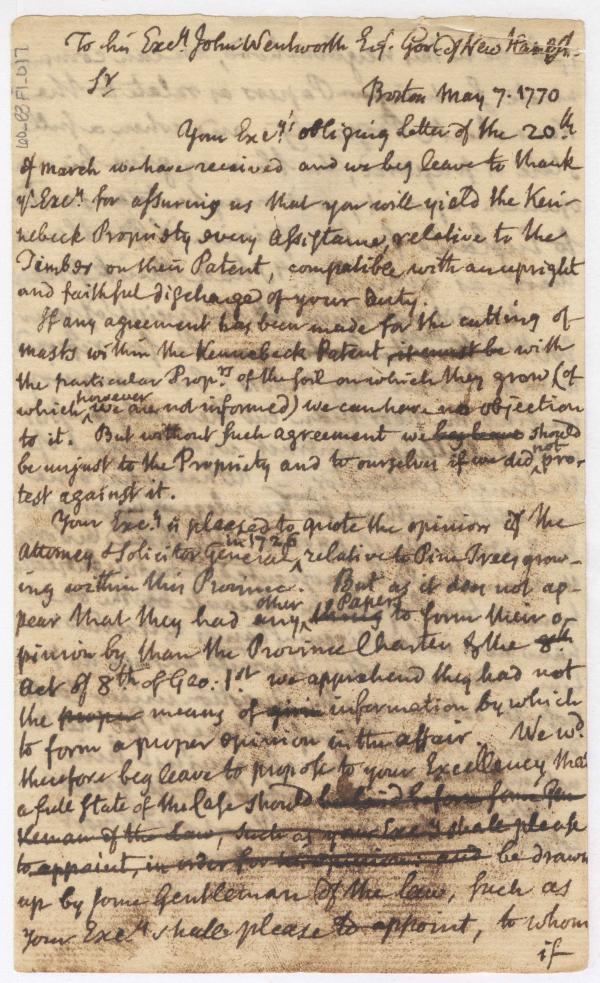 To his Excy. John Wentworth Esq. Govr. of New Hampsh.
Sr
Boston May 7. 1770
Your Excy's obliging Letter of the 20th
of march we have received and we beg leave to thank
yr Excy. for assuring us that you will yield the Ken-
nebeck Propriety every Assistance, relative to the
Timber on their Patent, compatible with an upright
and faithful discharge of your Duty.
If any agreement has been made for the cutting of
masts within the Kennebeck Patent, it must be with
the particular Proprs of the soil on which they grow (of
which however we are not informed) we can have no objection
to it. But without such agreement we beg leave should
be unjust to the Propriety and to ourselves if we did not pro-
test against it.
Your Excy. is pleased to quote the opinion of the
Attorney & Solicitor General in 1726, relative to Pine Trees grow-
ing within this Province. But as it does not ap-
pear that they had any other thing Papers to form their o-
pinion by than the Province Charter & the 8th
Act of 8th of Geo: 1st we apprehend they had not
the proper means of information by which
to form a proper opinion in the affair. We wd.
therefore beg leave to propose to your Excellency that
a full State of the Case should be laid before some Gen
tleman of the Law, such as your Excy shall please
to appoint, in order for his opinion: and be drawn
up by some Gentleman of the law, such as
your Excy. shall please to appoint, to whom
if
160-83 F1-017